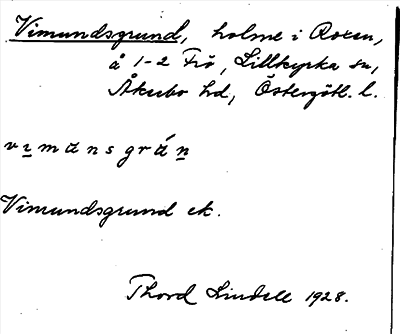 Vimundsgrund, holme i Roxen,
å 1-2 Frö, Lillkyrka sn,
Åkerbo hd, Östergötl. l.
vimansgrán
Vimundsgrund ek.
Thord Lindell 1928.